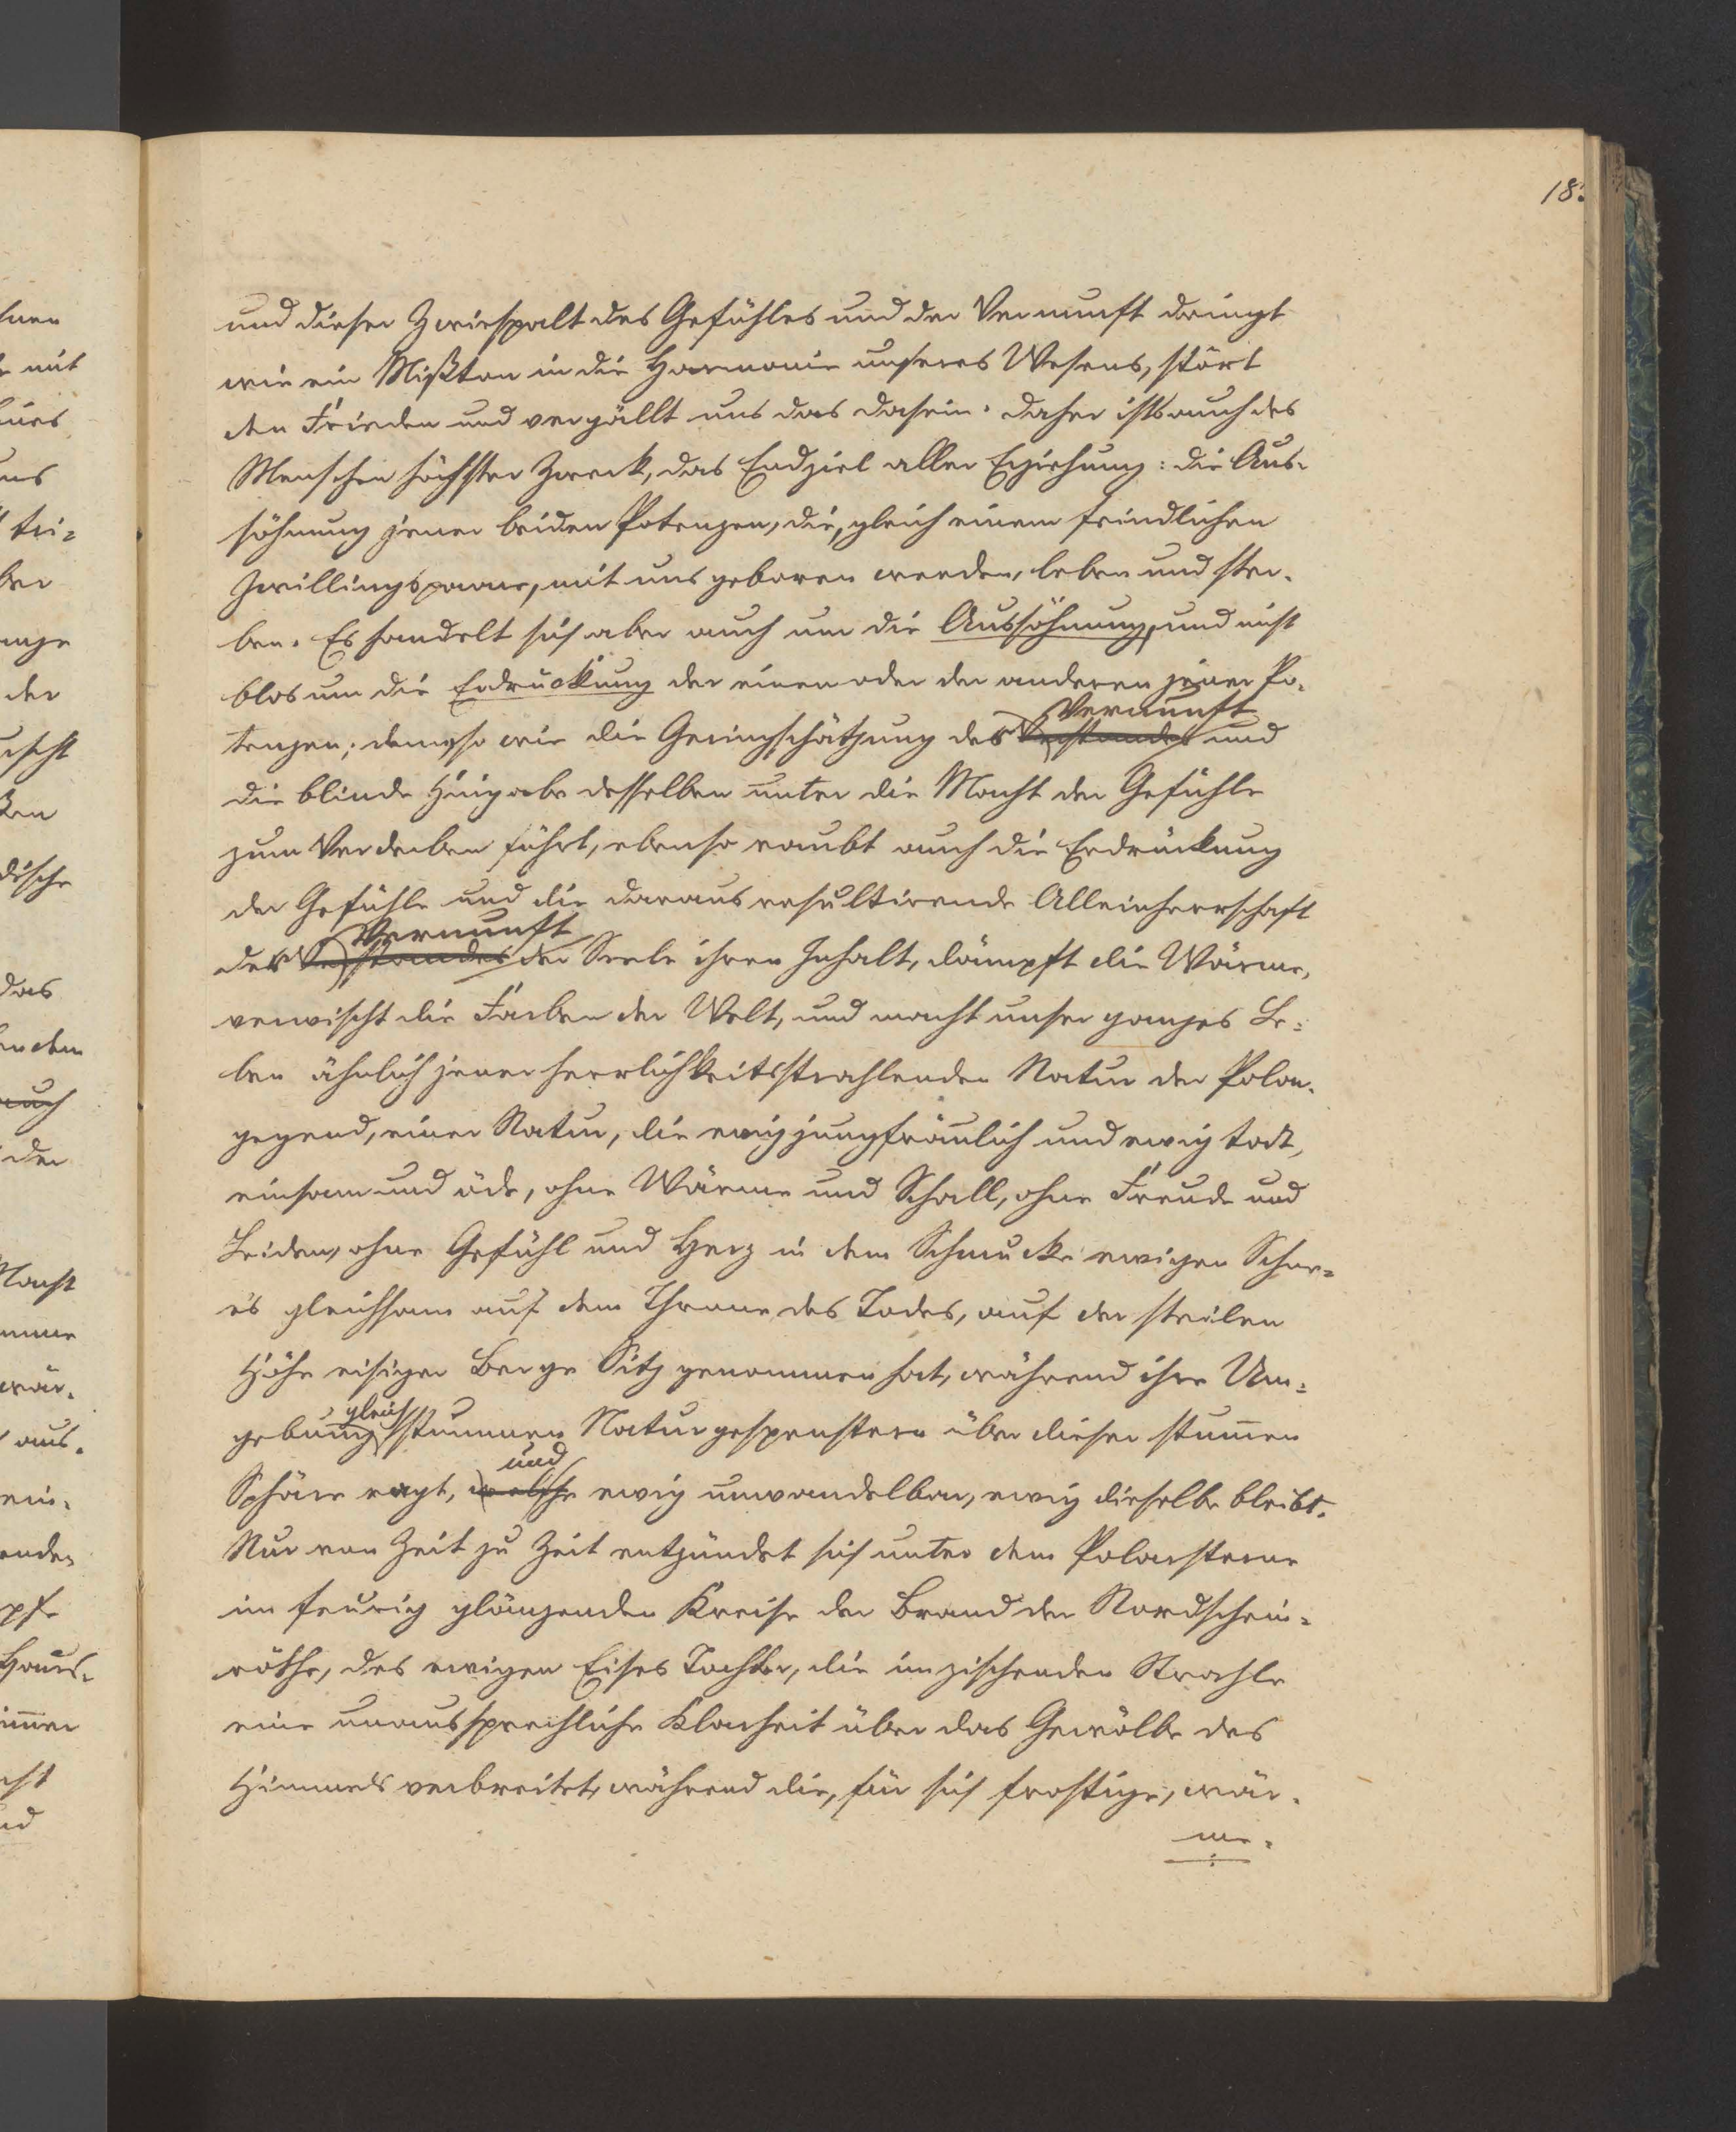 18
und dieser Zwiespalt des Gefühles und der Vernunft dringt
wie ein Mißton in die Harmonie unseres Wesens, stört
den Frieden und vergällt uns das Dasein. Daher ists auch des
Menschen höchster Zweck, das Endziel aller Erziehung: die Aus-
söhnung jener beiden Potenzen, die, gleich einem feindlichen
Zwillingspaare, mit uns geboren werden, leben und ster-
ben. Es handelt sich aber auch um die Aussöhnung, und nicht
blos um die Erdrückung der einen oder der anderen jener Po-
Vernunft
tenzen; denn so wie die Geringschätzung des Verstandes und
die blinde Hingabe desselben unter die Macht der Gefühle
zum Verderben führt, ebenso raubt auch die Erdrückung
der Gefühle und die daraus resultirende Alleinherrschaft
Vernunft
der Verstandes der Seele ihren Inhalt, dämpft die Wärme,
verwischt die Farben der Welt, und macht unser ganzes Le-
ben ähnlich jener herrlichkeitsstrahlenden Natur der Polar-
gegend, einer Natur, die ewig jungfräulich und ewig todt,
einsam und öde, ohne Wärme und Schall, ohne Freude und
Leiden, ohne Gefühl und Herz in dem Schmucke ewigen Schne-
es gleichsam auf dem Throne des Todes, auf der steilen
Höhe eisiger Berge Sitz genommen hat, während ihre Um-
gleich
gebung stummen Naturgespenstern über dieser stum̄en
und
Sphäre ragt, welche ewig unwandelbar, ewig dieselbe bleibt.
Nur von Zeit zu Zeit entzündet sich unter dem Polarsterne
im feurig glänzenden Kreise der Brand der Nordschein-
röthe, des ewigen Eises Tochter, die im zischenden Strahle
eine unaussprechliche Klarheit über das Gewölbe des
Himmels verbreitet, während die, für sich frostige, wär-
me-